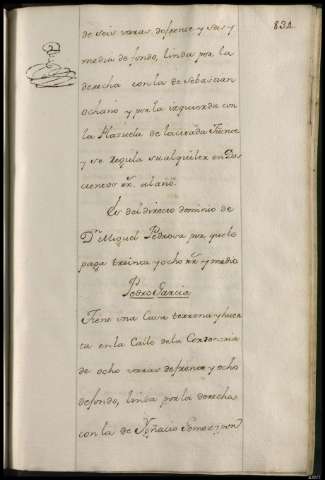 832
de seis varas de frente y seis y
media de fondo, linda por la
derecha con la de Sebastian
Ochano y por la izquierda con
la Plazuela de la citada Fuente
y se regula su alquiler en Dos
cientos rr.ˢ al año.
Es del directo dominio de
D.ⁿ Miguel Pedrosa por que le
paga treinta y ocho rr.ˢ y medio
Pedro Garcia
Tiene una Casa terrena y huer
ta en la Calle de la
de ocho varas de frente y ocho
de fondo, linda por la derecha
con la de Ygnacio Gomez y por